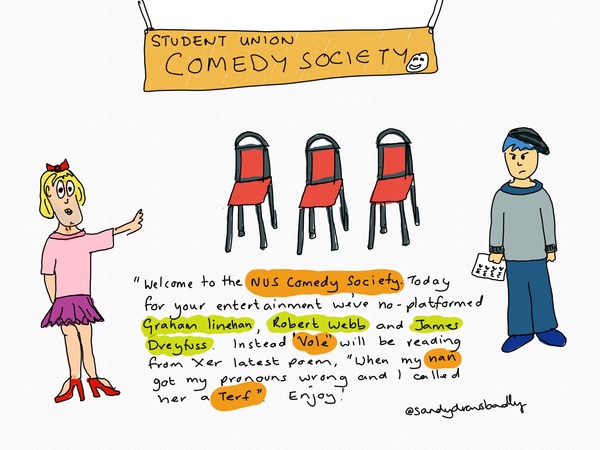 STUDENT UNION
COMEDY SOCIETY
"Welcome to the NUS Comedy Society. Today
for your entertainment we've no-platformed
Graham linehan, Robert Webb and James
Dreyfuss. Instead 'Vole' will be reading
from Xer latest poem, "When my nan
got my pronouns wrong and I called
her a Terf". Enjoy!
@sandydrawsbadly